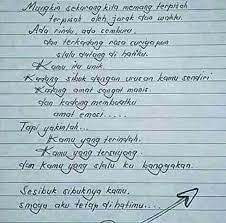 Mungkin sekarang kita memang terpisah
terpisah oleh jarak dan waktu.
Ada rindu, ada cemburu
dan terkadang rasa curiga pun
slalu datang di hatiku.
Kamu itu unik.
Kadang sibuk dengan urusan kamu sendiri
Kadang amat sangat manis.
dan kadang membuatku
amat emosi.....
Tapi yakinlah...
Kamu yang terindah.
Kamu yang tersayang.
dan kamu yang slalu ku banggakan.
Sesibuk sibuknya kamu,
smoga aku tetap di hatimu....